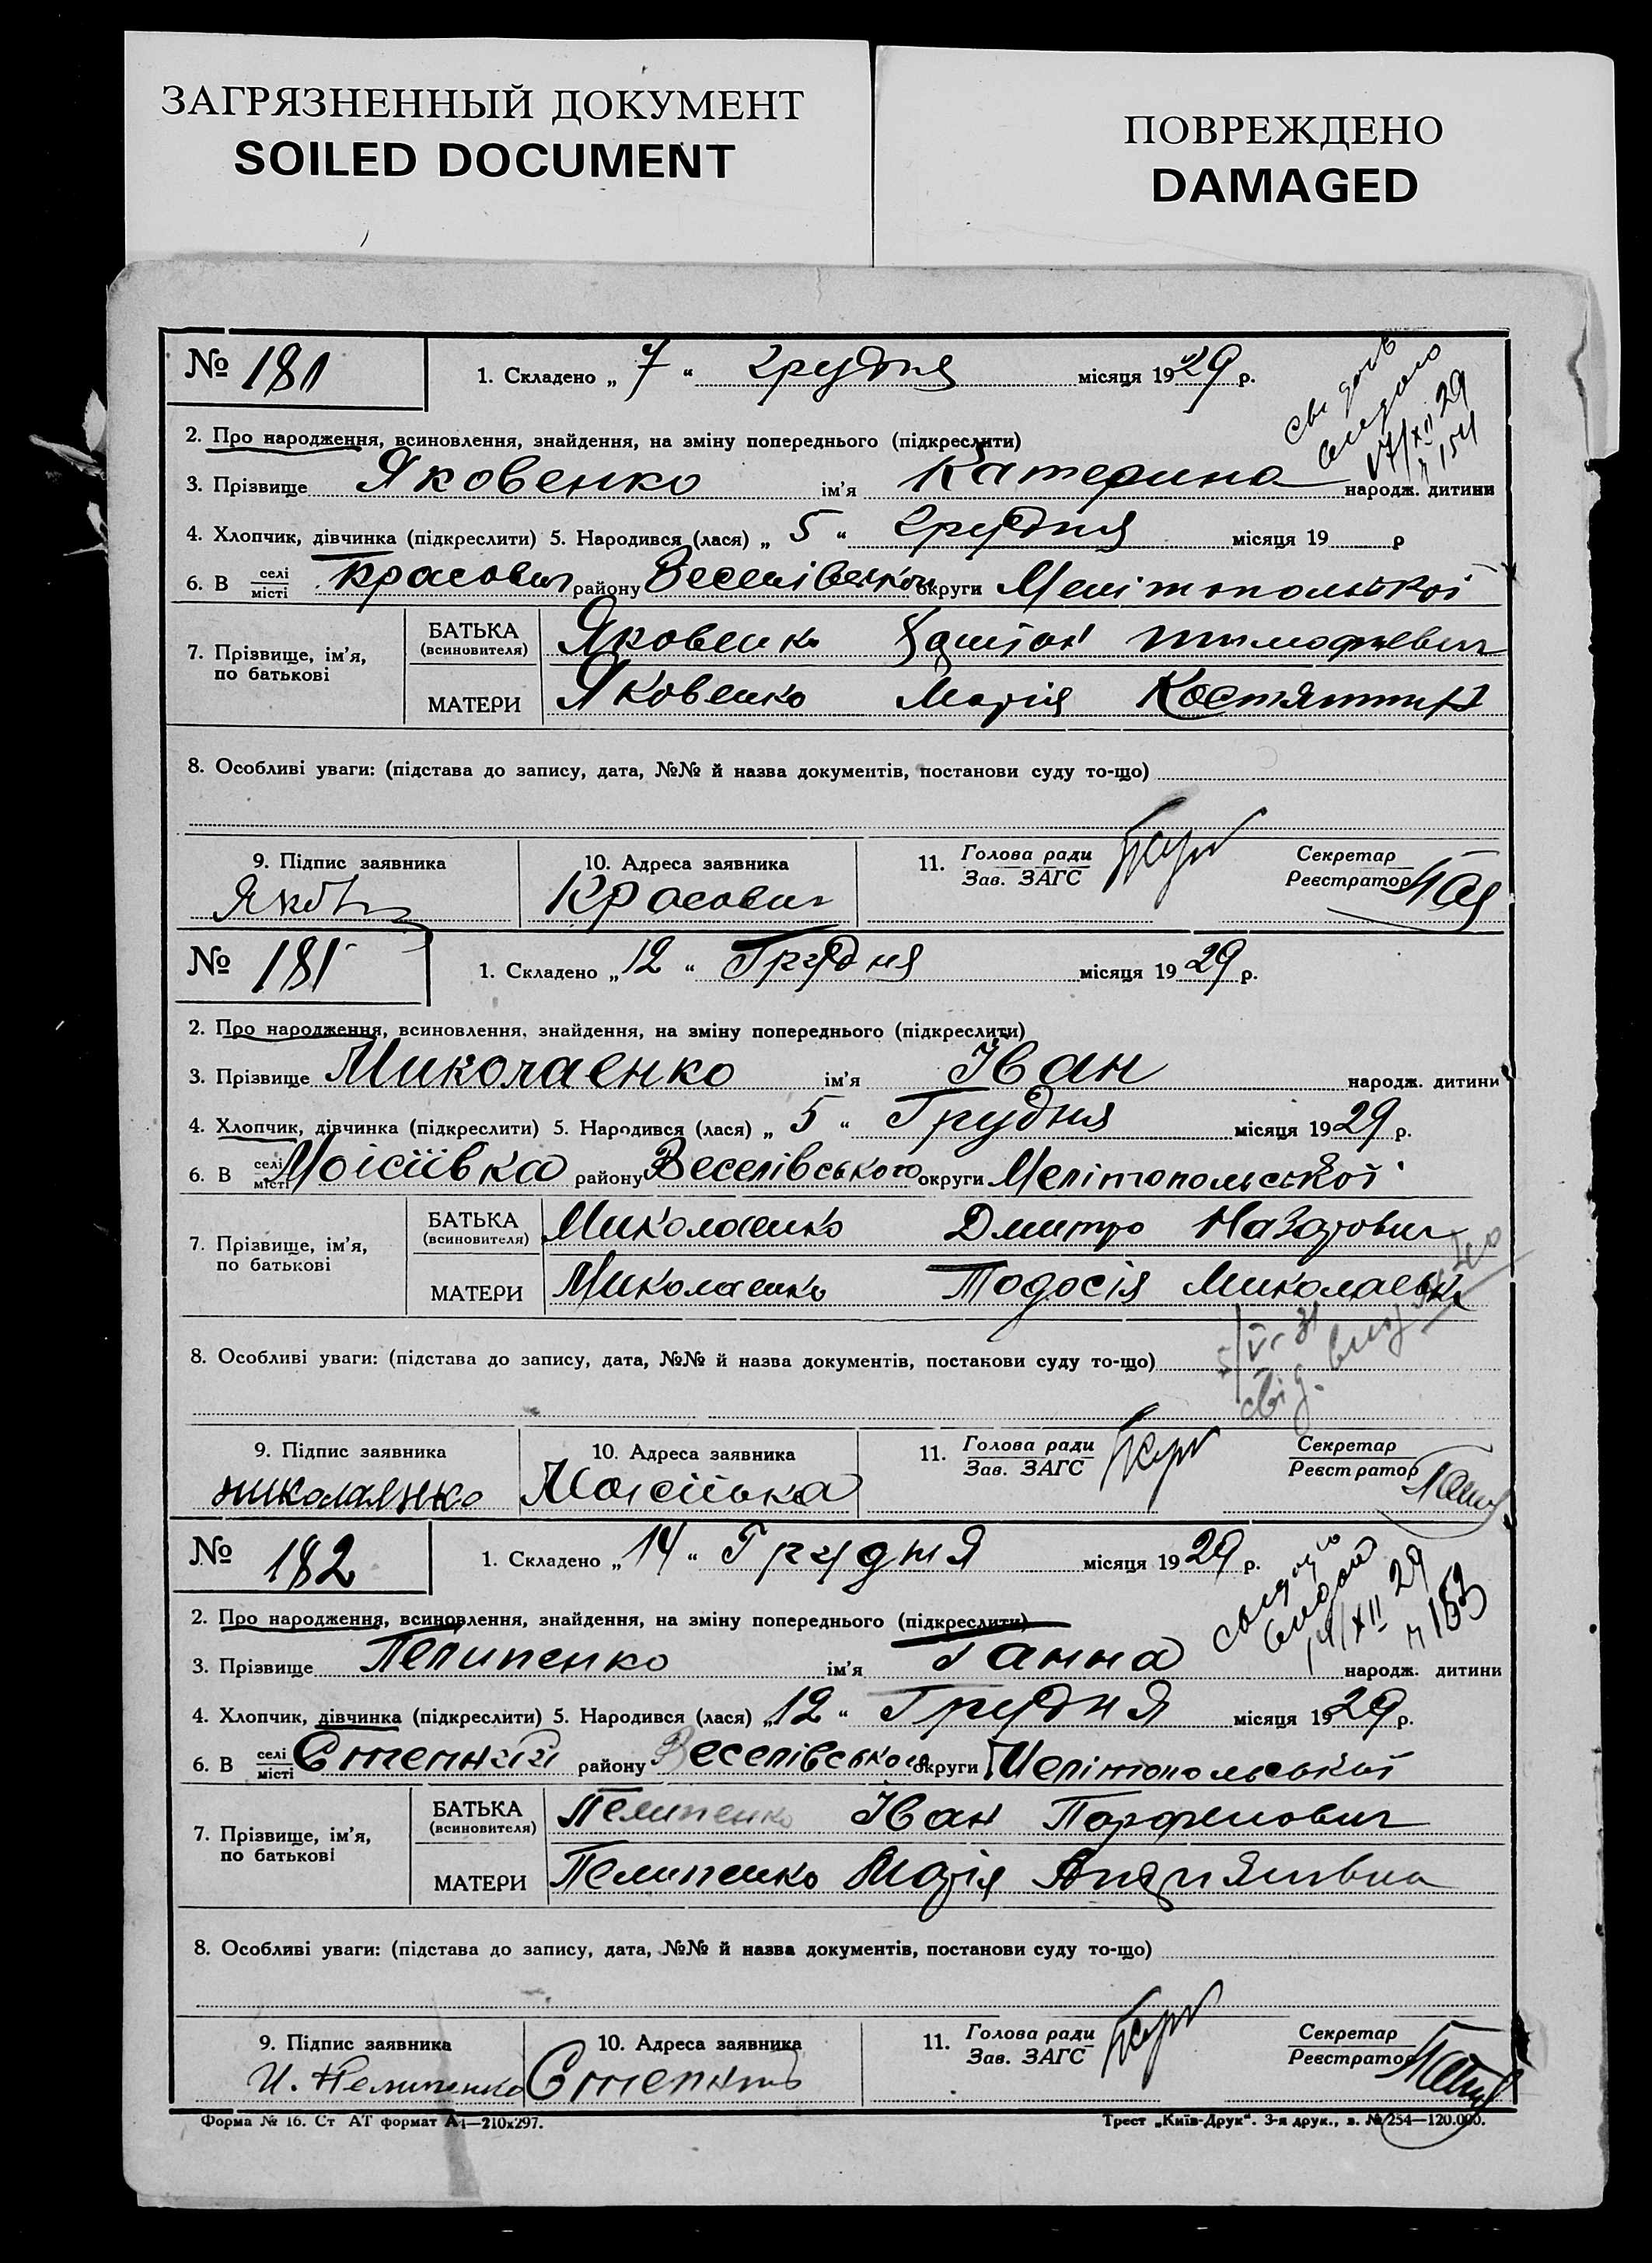 ЗАГРЯЗНЕННЫЙ ДОКУМЕНТ
SOILED DOCUMENT
ПОВРЕЖДЕНО
DAMAGED
№ 181
1. Складено „ 7 “ грудня місяця 1929 р.
2. Про народження, всиновлення, знайдення, на зміну попереднього (підкреслити)
17/XII 29
3. Прізвище Яковенко ім'я Катерина народж. дитини
4. Хлопчик, дівчинка (підкреслити) 5. Народився (лася) „ 5 “ грудня місяця 19 р
6. В селі місті району округи Мелітопольської
7. Прізвище, ім'я, по батькові
БАТЬКА (всиновителя) Яковенко
МАТЕРИ Яковенко Марія
8. Особливі уваги: (підстава до запису, дата, №№ й назва документів, постанови суду то-що)
9. Підпис заявника
10. Адреса заявника
11. Голова ради Зав. ЗАГС
Секретар Реєстратор
№ 181
1. Складено „ 12 “ Грудня місяця 1929 р.
2. Про народження, всиновлення, знайдення, на зміну попереднього (підкреслити)
3. Прізвище Миколаенко ім'я Іван народж. дитини
4. Хлопчик, дівчинка (підкреслити) 5. Народився (лася) „ 5 “ Грудня місяця 1929 р.
6. В селі місті Моісіївка району Веселівського округи Мелітопольської
7. Прізвище, ім'я, по батькові
БАТЬКА (всиновителя) Миколаенко Дмитро Назарович
МАТЕРИ Миколаенко Тодосія
8. Особливі уваги: (підстава до запису, дата, №№ й назва документів, постакови суду то-що)
9. Підпис заявника
николаянко
10. Адреса заявника
11. Голова ради Зав. ЗАГС
Секретар Реєстратор
№ 182
1. Складено „ 14 “ Грудня місяця 1929 р.
2. Про народження, всиновлення, знайдення, на зміну попереднього (підкреслити)
3. Прізвище Пелипенко ім'я Ганна народж. дитини
4. Хлопчик, дівчинка (підкреслити) 5. Народився (лася) „ 12 “ Грудня місяця 1929 р.
6. В селі місті району Веселівського округи Мелітопольської
7. Прізвище, ім'я, по батькові
БАТЬКА (всиновителя) Пелипенко Іван Парфенович
МАТЕРИ Пелипенко Марія
8. Особливі уваги: (підстава до запису, дата, №№ й назва документів, постанови суду то-що)
9. Підпис заявника
И. Пелипенко
10. Адреса заявника
11. Голова ради Зав. ЗАГС
Секретар Реєстратор
Форма № 16. Ст АТ формат А4—210х297.
Трест „Київ-Друк“. 3-я друк., з. № 254—120.000.